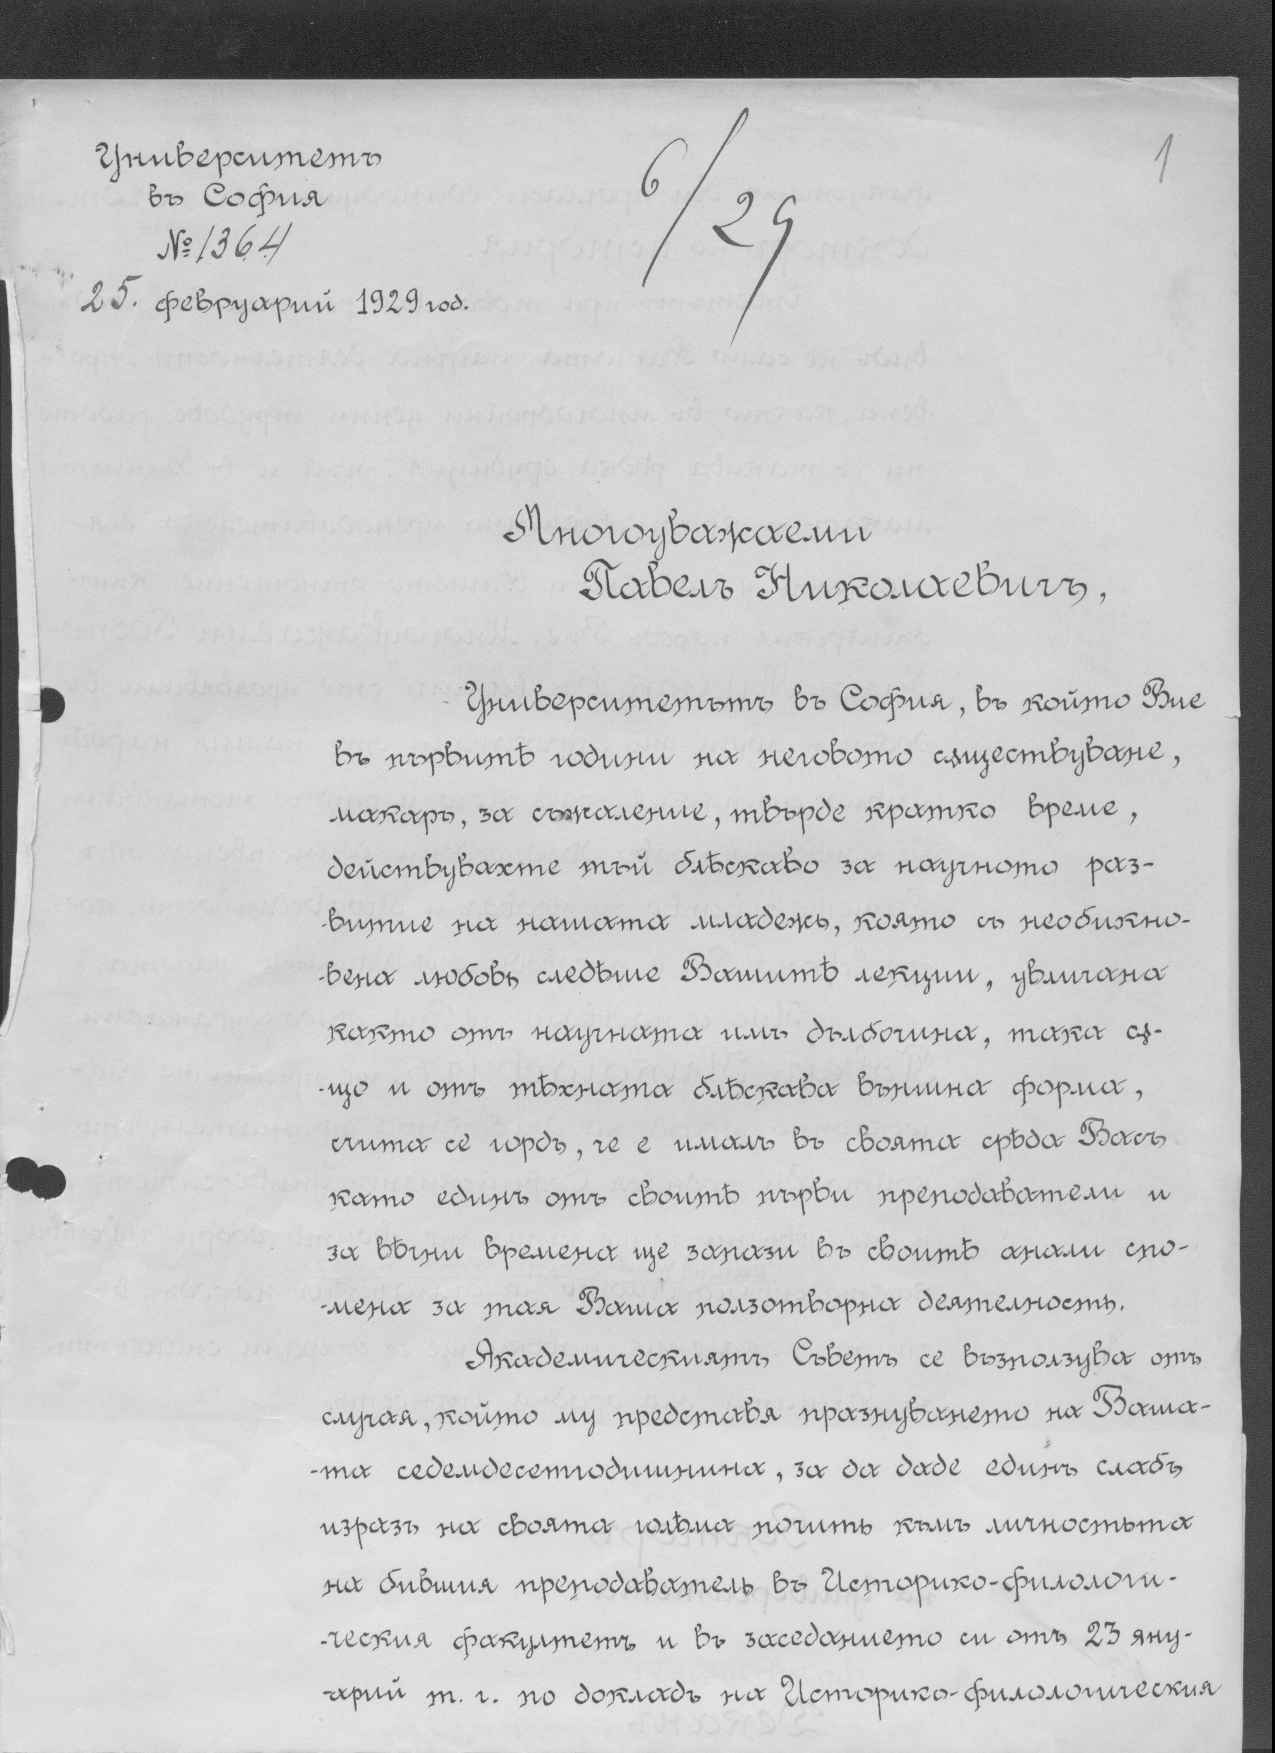 Университетъ
въ София
№ 1364
25. февруарий 1929 год.
6/29
1
Многоуважаеми
Павелъ Николаевичъ,
Университетътъ въ София, въ който Вие
въ първитѣ години на неговото сѫществуване,
макаръ, за съжаление, твърде кратко време,
действувахте тъй блѣскаво за научното раз-
-витие на нашата младежь, която съ необикно-
-вена любовь следѣше Вашитѣ лекции, увличана
както отъ научната имъ дълбочина, така сѫ-
-що и отъ тѣхната блѣскава външна форма,
счита се гордъ, че е ималъ въ своята срѣда Васъ
като единъ отъ своитѣ първи преподаватели и
за вѣчни времена ще запази въ своитѣ анали спо-
-мена за тая Ваша ползотворна деятелность.
Академическиятъ Съветъ се възползува отъ
случая, който му представя празнуването на Ваша-
-та седемдесетгодишнина, за да даде единъ слабъ
изразъ на своята голѣма почить къмъ личностьта
на бившия преподаватель въ Историко-филологи-
-ческия факултетъ и въ заседанието си отъ 23 яну-
-арий т. г. по докладъ на Историко-филологическия